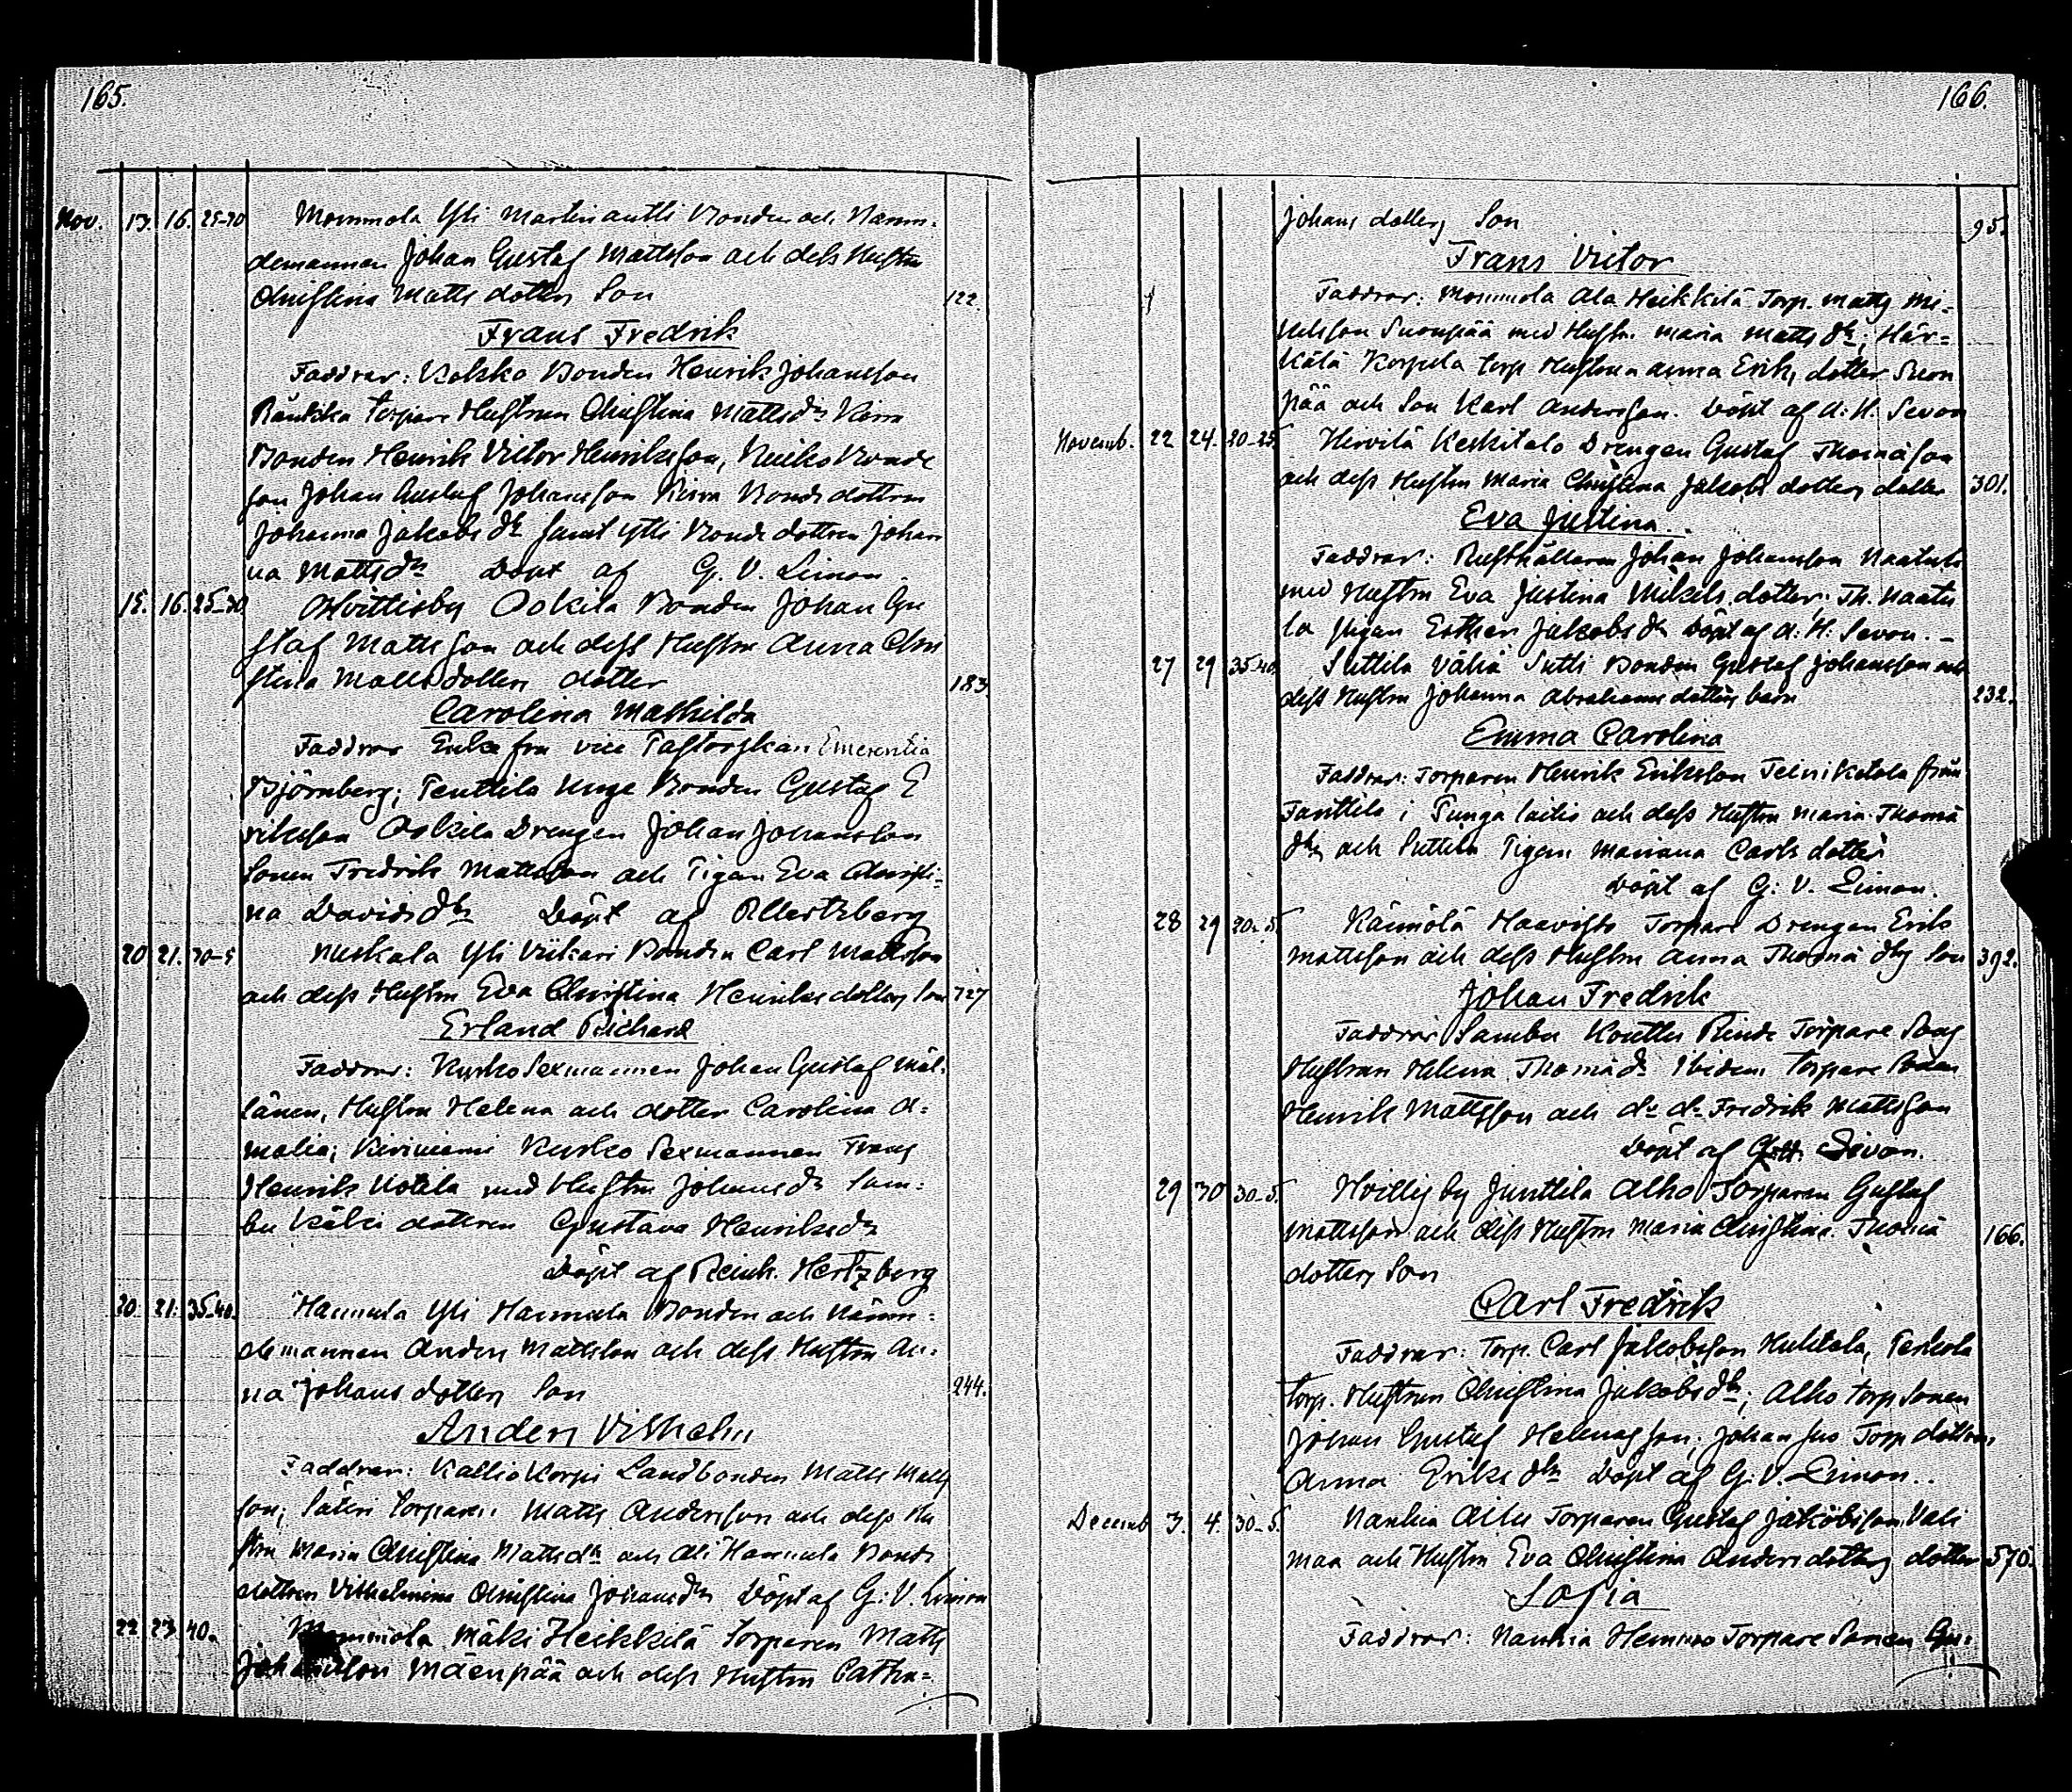 165.
Nov. 13. 16. 25-30 Mommola Yli Martin antti Bonden och Nämn-
demannen Johan Gustaf Mattsson och dess Hustru
Christina Matts dotters Son 122.
Frans Fredrik
Faddrar: Kokko Bonden Henrik Johansson
Torpare Hustrun Christina Mattsdr
Bonden Henrik Victor Henriksson, Bonde
son Johan Gustaf Johansson Bondedottren
Johanna Jakobs dr samt Ylli Bonde dottren Johan
na Mattsdr Döpt af G. V. Limon.
15. 16. 25-30 Hvittisby Oskila Bonden Johan Gu
staf Matts son och dess Hustru Anna Chri
stina Matts dotters dotter 183
Carolina Mathilda
Faddrar Enke fru vice Pastorskan Emerentia
Björnberg; Penttila Bonden Gustaf E
riksson Oskila Drengen Johan Johansson
Sonen Fredrik Mattsson och Pigan Eva Christi-
na Davidsdr Döpt af R Hertzberg
20 21. 30-5 Yli Bonden Carl Mattsson
och dess Hustru Eva Christina Henriks dotters Son 727
Erland Richard
Faddrar: Kurko Sexmannen Johan Gustaf Mäl-
länen, Hustru Helena och dotter Carolina A-
malia; Kiviniemi Kurko Sexmannen Frans
Henrik Kotila med Hustru Johansdr Sam-
bu dottren Gustava Henriksdr
Döpt af Reinh. Hertzberg
20. 21. 35-40. Hannula Yli Hannula Bonden och Näm-
demannen Anders Mattsson och dess Hustru An-
na Johans dotters Son 244.
Anders Vilhelm
Faddrar: Kallio Korpi Landbonden Matts Matts
son; Säteri Torparen Matts Andersson och dess Hu
stru Maria Christina Mattsdr och Ali Hannula Bonde
dottren Vilhelmina Christina Johansdr Döpt af G: V. Limon
22 23 40. Mommola Mäki Heikkilä Torparen Matts
Johansson Mäenpää och dess Hustru Catha-
166.
Johans dotters Son 95.
Frans Victor
Faddrar: Mommola Ala Heikkilä Torp. Matts Mi-
kelsson Suonpää med Hustru Maria Matts dr; Här-
kälä Korpela torp Hustrun Anna Eriks dotter Suon
pää och Son Karl Andersson. Döpt af A: H: Sevon
Novemb. 22 24. 20-25 Hirvilä Keskitalo Drengen Gustaf Thomasson
och dess Hustru Maria Christina Jakobs dotters dotter 301.
Eva Justina.
Faddrar: Rusthållaren Johan Johansson Naatula
med Hustru Eva Justina Mikels dotter: Th. Naatu
la pigan Esther Jakobs dr Döpt af A: H: Sevon. –
27 29 35-40 Suttila Väliä Sutti Bonden Gustaf Johansson och
dess Hustru Johanna Abrahams dotters barn 232.
Emma Carolina
Faddrar: Torparen Henrik Eriksson från
i Punga laitio och dess Hustru Maria Thomä
dtr och Suttila Pigan Mariana Carls dotter
Döpt af G: V. Limon.
28 29 20-5. Haavisto Torpare Drengen Erik
Mattsson och dess Hustru Anna Thomä dtrs Son 392.
Johan Fredrik
Faddrar Sambu Torpare
Hustrun Helena Thomä dr Ibidem Torpare Sonen
Henrik Mattsson och do do Fredrik Mattsson
Döpt af
29 30 30-5. Hvittis by Junttila Alho Torparen Gustaf
Mattsson och dess Hustru Maria Christina Thomä 166.
dotters Son
Carl Fredrik
Faddrar: Torp. Carl Jakobsson Huhtala,
torp. Hustrun Christina Jakobs dtr; Alho torp sonen
Johan Gustaf Helenas son; Torp dottren
Anna Eriks dtr Döpt af G: V. Limon..
Decemb 3. 4. 30-5. Nanhia Torparen Gustaf Jakobsson Vali
maa och Hustru Eva Christina Anders dotters dotter 570.
Sofia
Faddrar: Nanhia Torpare Sonen Gu-